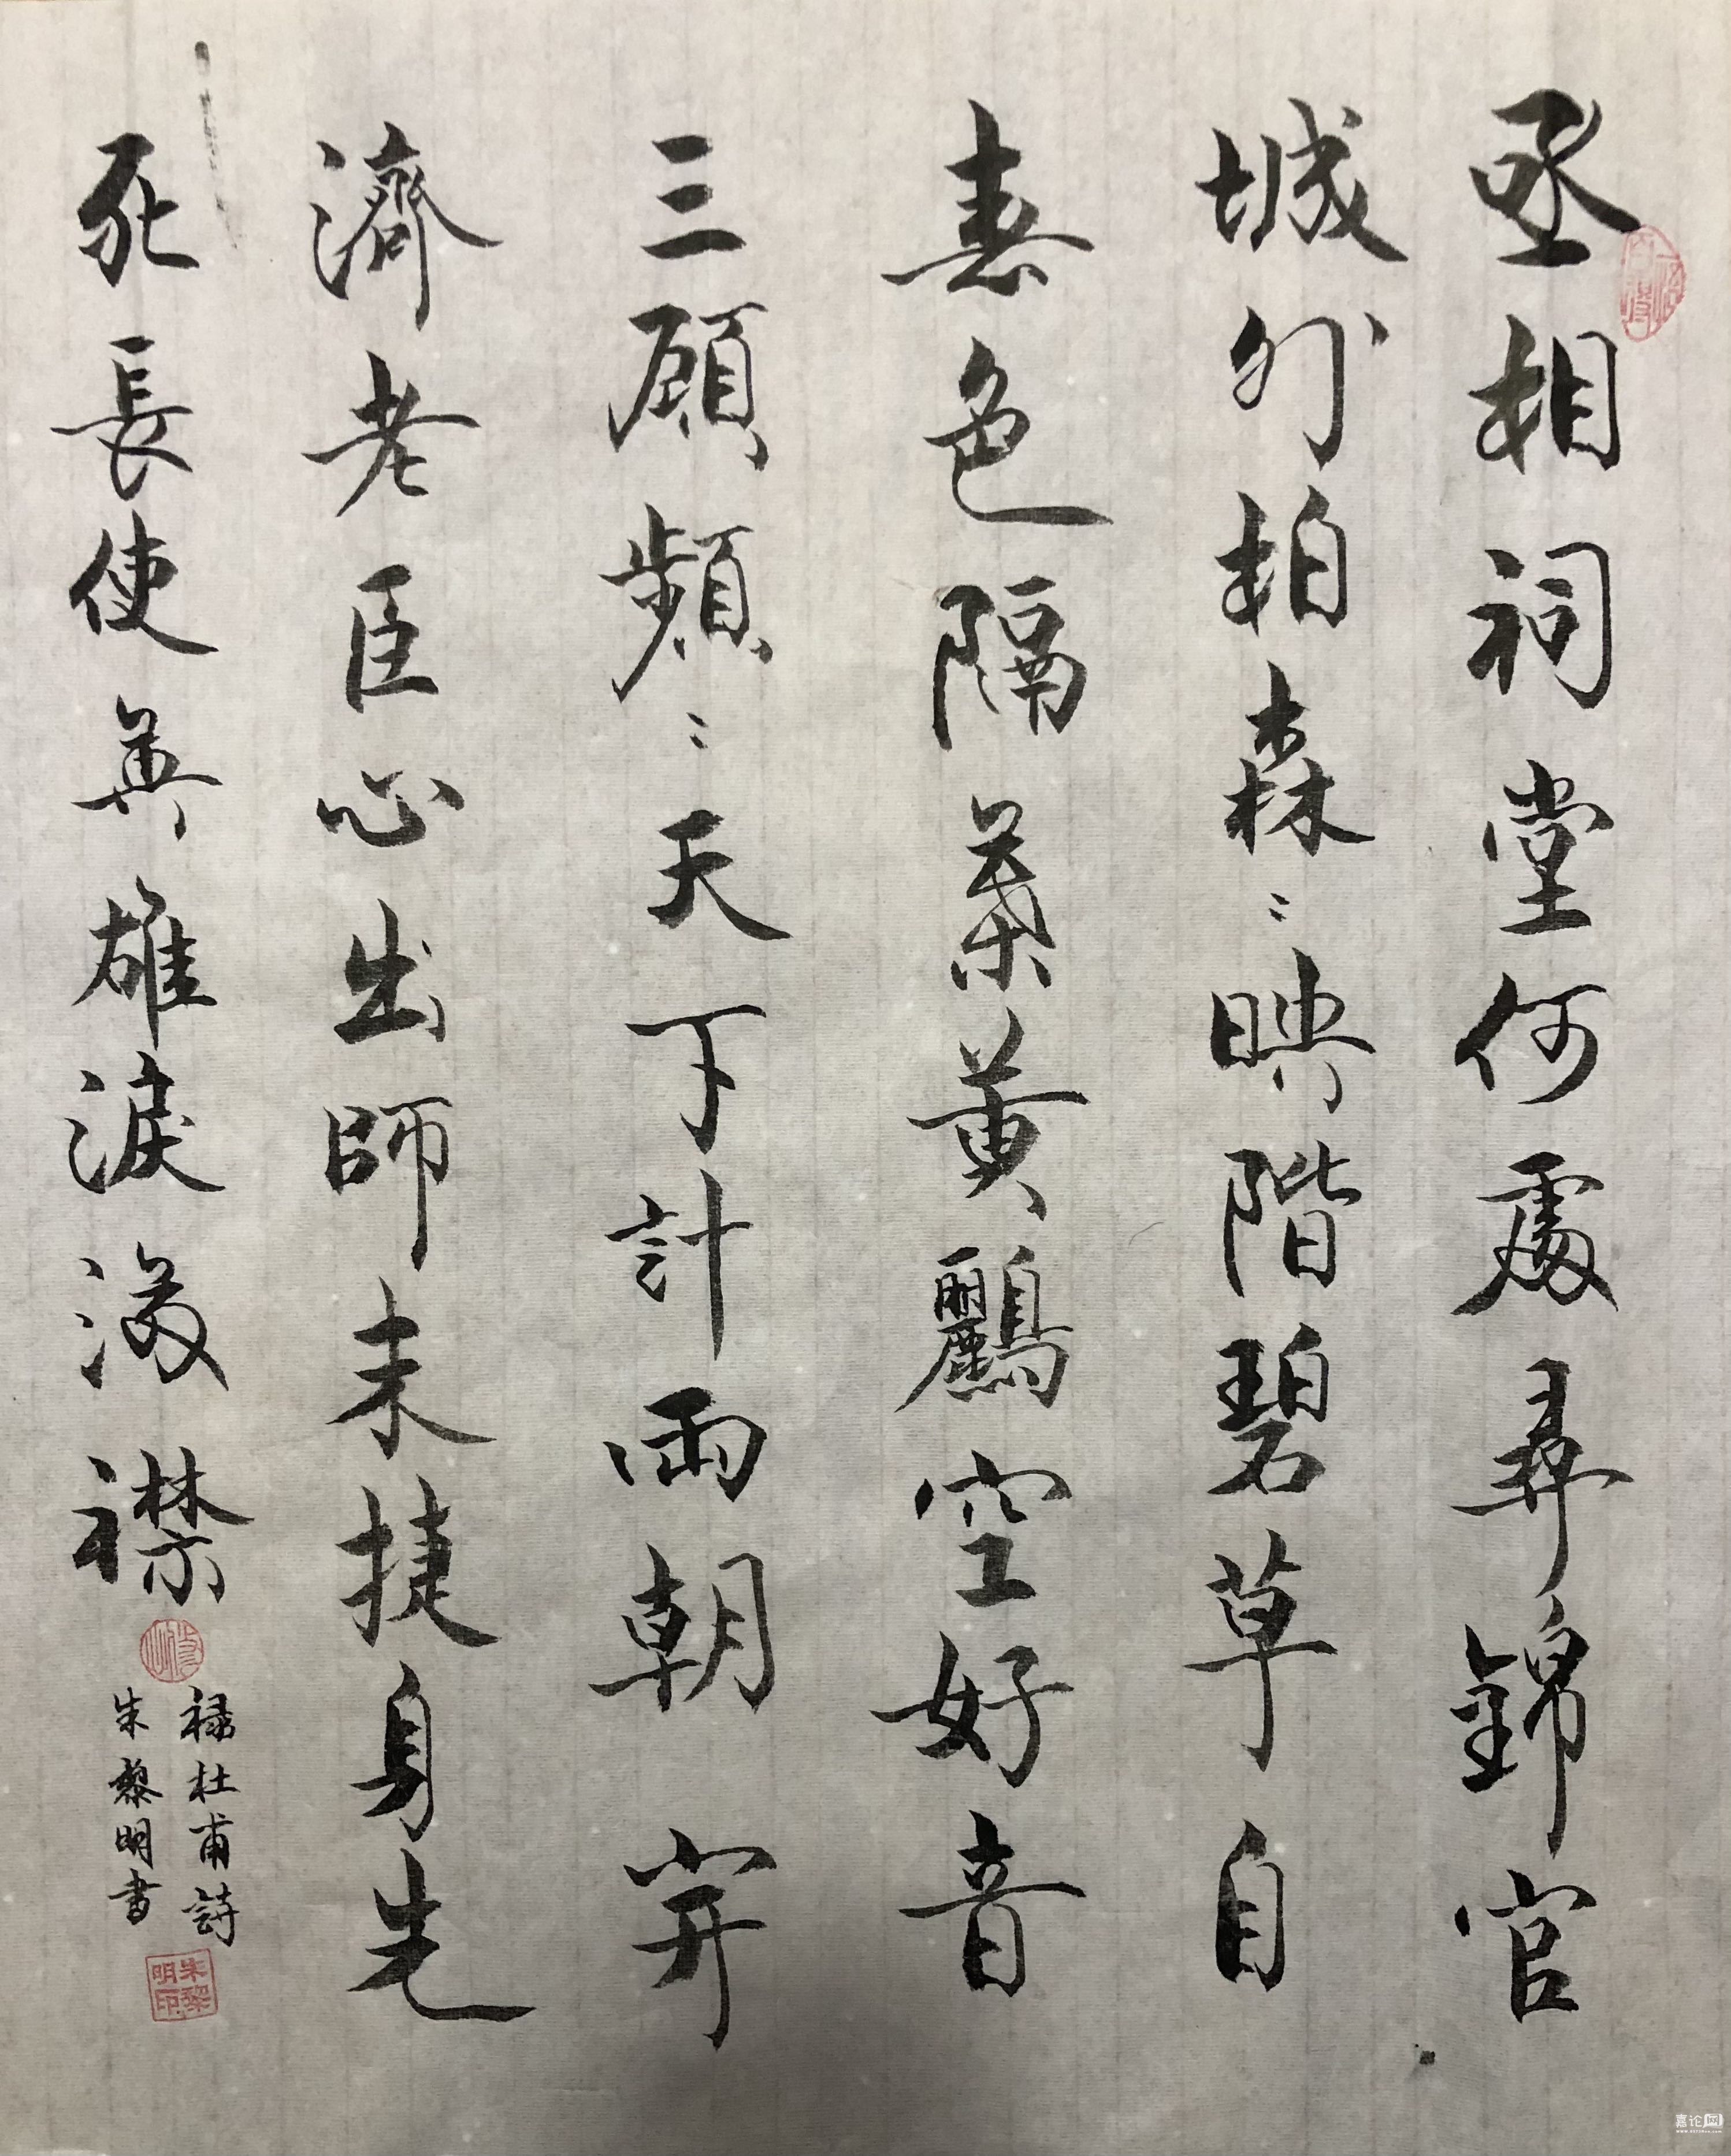 丞相祠堂何處尋錦官
城外柏森〻映階碧草自
春色隔葉黃鸝空好音
三顧頻〻天下計兩朝開
濟老臣心出師未捷身先
死長使英雄淚滿襟
祿杜甫詩
朱黎明書
朱黎明印
嘉论网